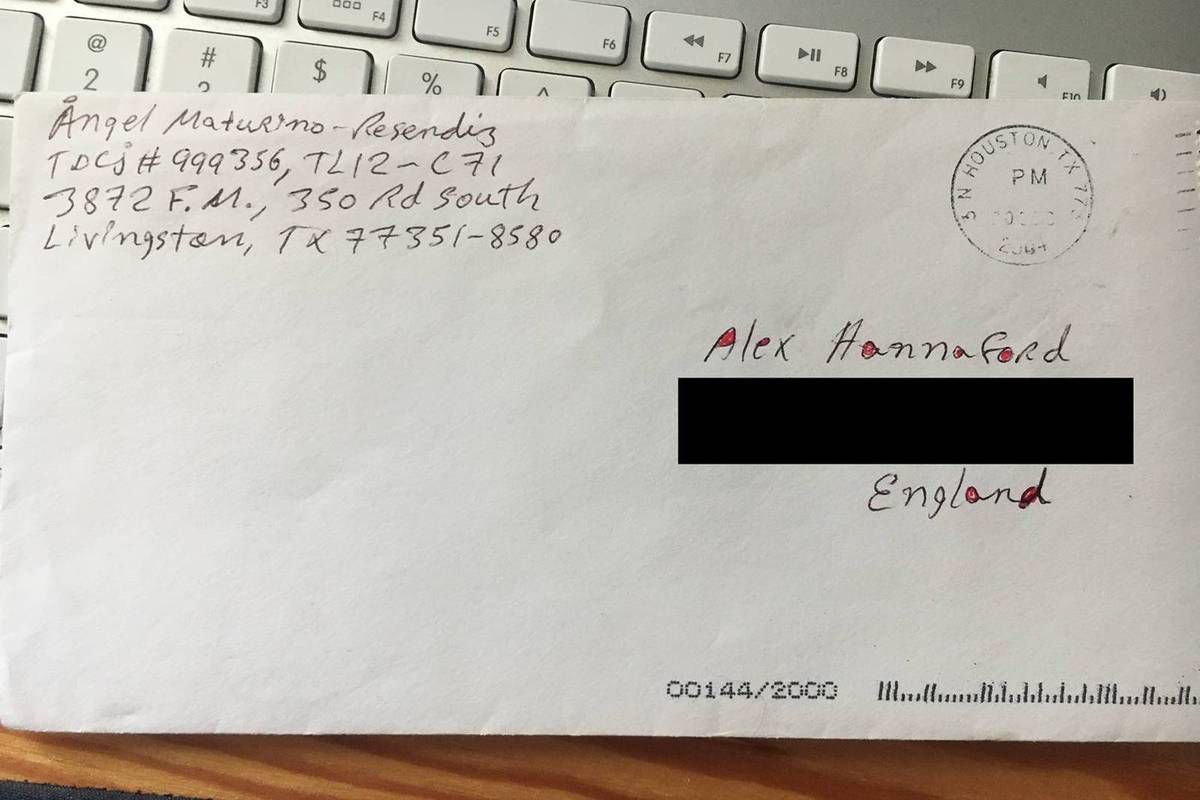 F3
F4
F5
F6
F7
F8
F9
F10
@
2
#
$
%
^
Ångel Maturino-Resendiz
TDCJ # 999356, TL12-C71
3872 F.M., 350 Rd South
Livingston, TX 77351-8580
N HOUSTON TX
PM
2004
Alex Hannaford
England
00144/2000